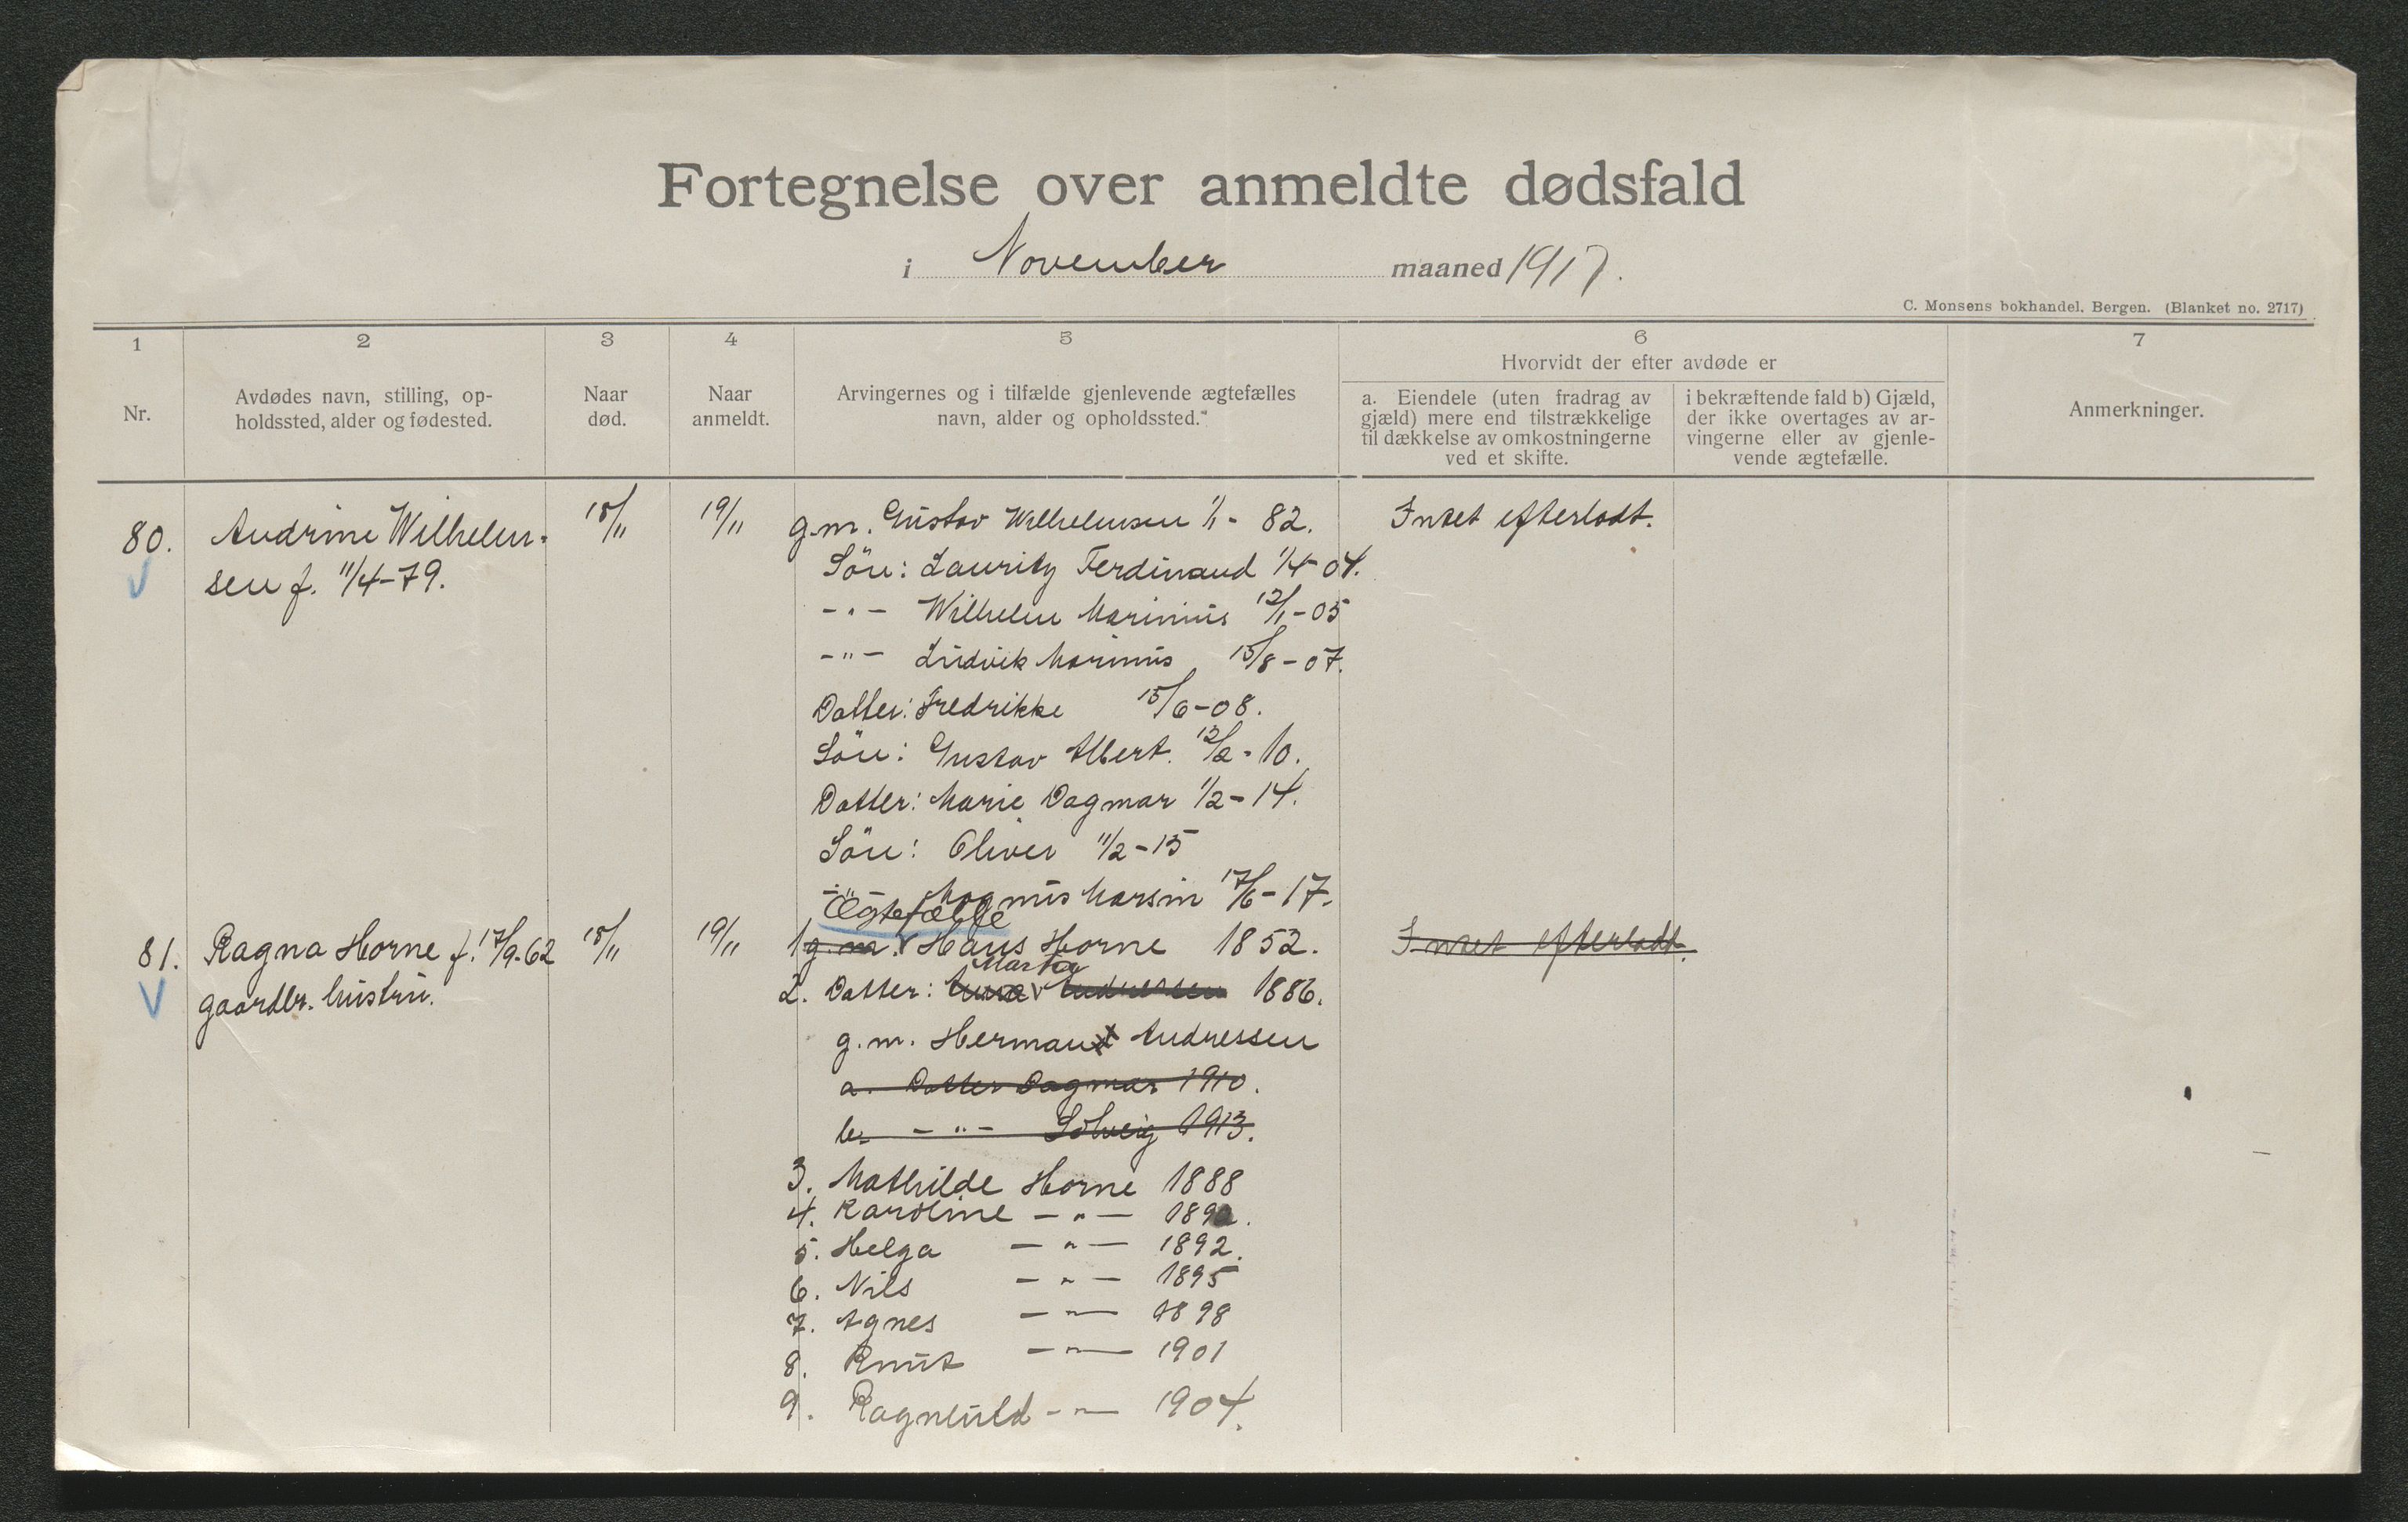 Fortegnelse over anmeldte dødsfald
i November maaned 1917.
C. Monsens bokhandel, Bergen. (Blanket no. 2717)
1 2 3 4 5 6 7
Hvorvidt der efter avdøde er
Nr.
Avdødes navn, stilling, op-
holdssted, alder og fødested.
Naar
død.
Naar
anmeldt.
Arvingernes og i tilfælde gjenlevende ægtefælles
navn, alder og opholdssted.
a. Eiendele (uten fradrag av
gjæld) mere end tilstrækkelige
til dækkelse av omkostningerne
ved et skifte.
i bekræftende fald b) Gjæld,
der ikke overtages av ar-
vingerne eller av gjenle-
vende ægtefælle.
Anmerkninger.
80. Andrine Wilhelm- 18/11 19/11 g.m. Gustav Wilhelmsen 1/1 - 82. Intet efterladt.
sen f. 11/4-79.
Sön: Lauritz Ferdinand 1/4-04.
-"- Wilhelm Marinius 12/1-05
-"- Ludvik Marinus 15/8-07.
Datter: Fredrikke 15/6-08.
Sön: Gustav Albert. 12/2-10.
Datter: Marie Dagmar 1/2-14.
Sön: Oliver 11/2-15
-"- Magnus Marsin 17/6-17.
Ægtefælle
81. Ragna Horne f. 17/9-62 18/11 19/11 1 g.m. Hans Horne 1852. Intet efterladt.
gaardbr. hustru.
Marta
2. Datter: Andressen 1886.
g.m. Herman Andressen
a. Datter Dagmar 1910.
b. -"- Solveig 1913.
3. Mathilde Horne 1888
4. Karoline -"- 1890.
5. Helga -"- 1892.
6. Nils -"- 1895
7. Agnes -"- 1898
8. Knut -"- 1901
9. Ragnhild -"- 1904.